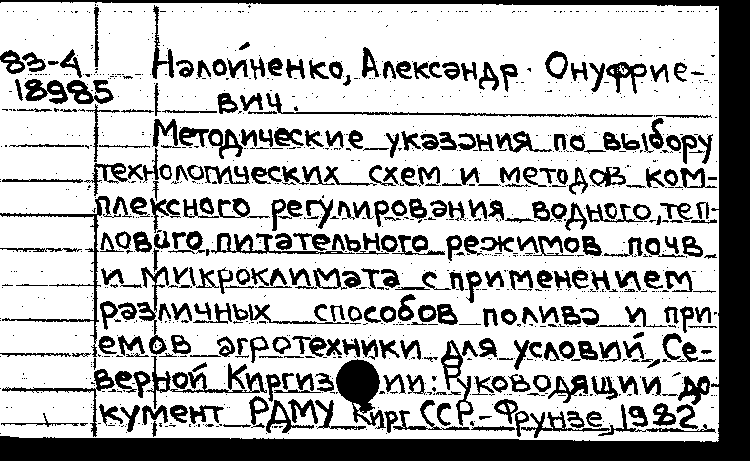 83-4 Налойненко, Александр Онуфрие-
18985 вич.
Методические указания по выбору
технологических схем и методов ком-
плексного регулирования водного, теп-
лового, питательного режимов почв
и микроклимата с применением
различных способов полива и при-
емов агротехники для условий Се-
верной Киргизии: Руководящий до-
кумент РДМУ Кирг ССР.-Фрунзе, 1982.